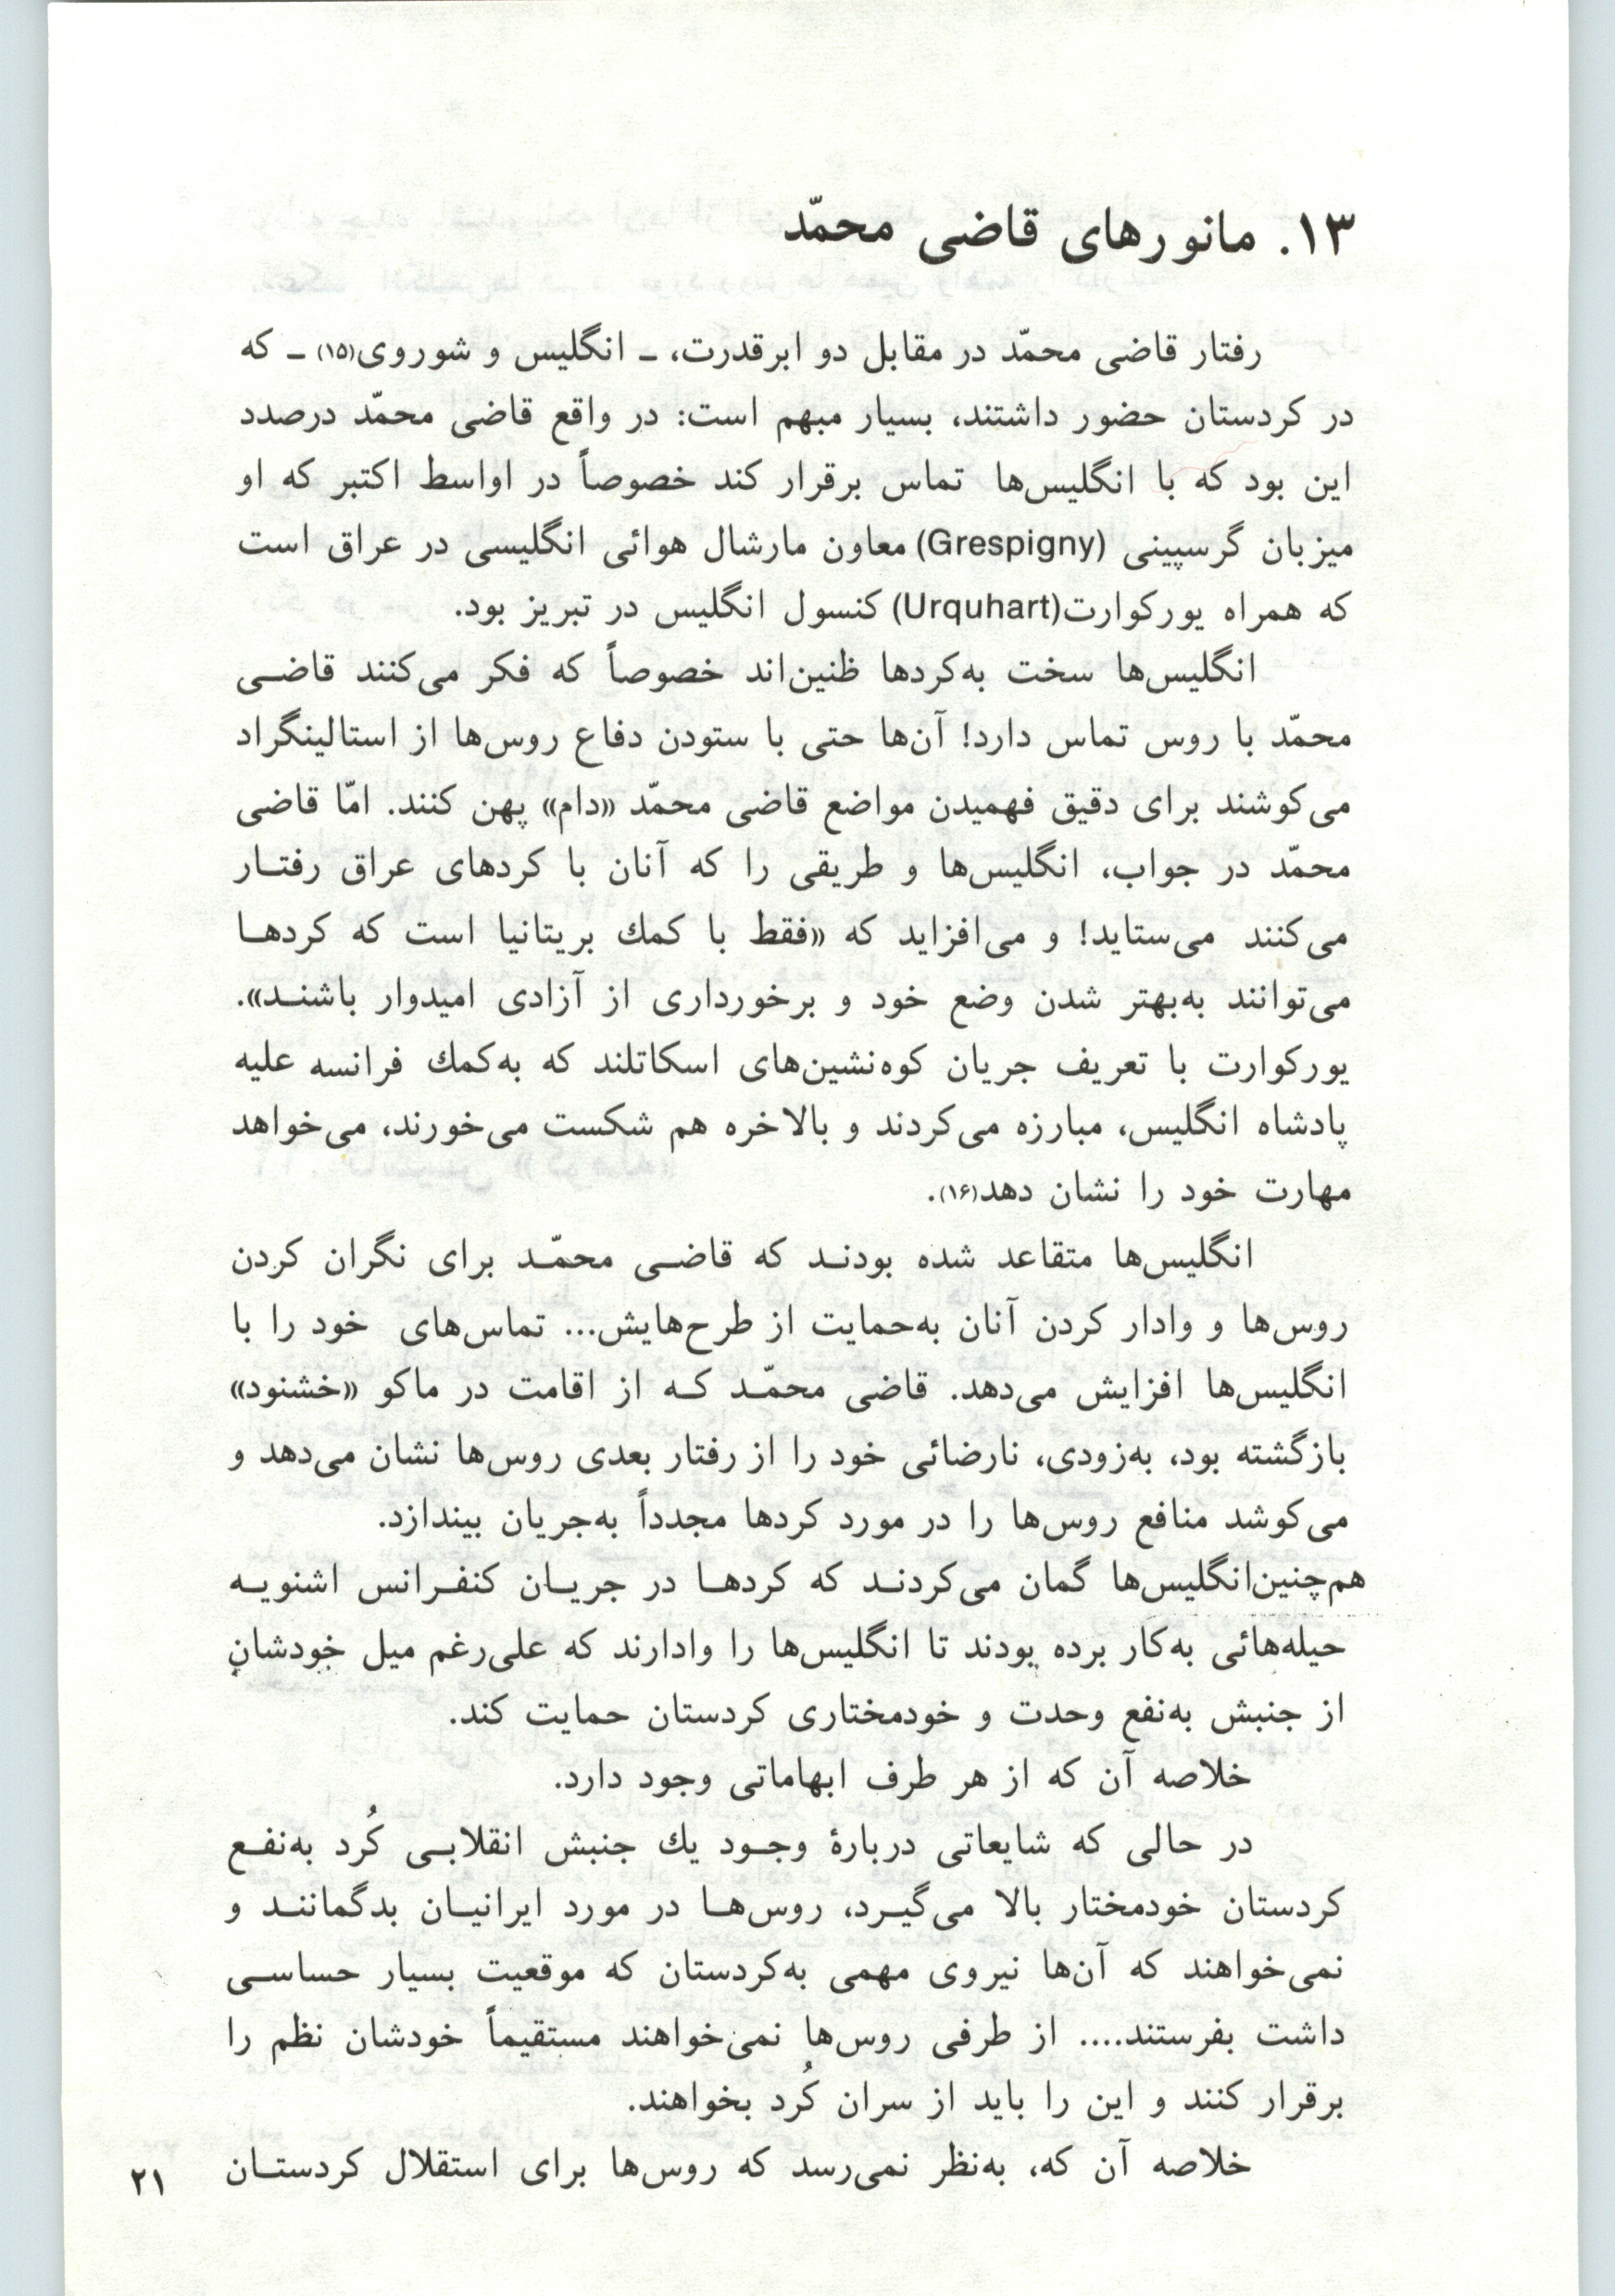 ۱۳. مانورهای قاضی محمّد
رفتار قاضی محمّد در مقابل دو ابرقدرت، ـ انگلیس و شوروی(۱۵) ـ که
در کردستان حضور داشتند، بسیار مبهم است: در واقع قاضی محمّد درصدد
این بود که با انگلیس‌ها تماس برقرار کند خصوصاً در اواسط اکتبر که او
میزبان گرسپینی (Grespigny) معاون مارشال هوائی انگلیسی در عراق است
که همراه یورکوارت(Urquhart) کنسول انگلیس در تبریز بود.
انگلیس‌ها سخت به‌کردها ظنین‌اند خصوصاً که فکر می‌کنند قاضی
محمّد با روس تماس دارد! آن‌ها حتی با ستودن دفاع روس‌ها از استالینگراد
می‌کوشند برای دقیق فهمیدن مواضع قاضی محمّد «دام» پهن کنند. امّا قاضی
محمّد در جواب، انگلیس‌ها و طریقی را که آنان با کردهای عراق رفتار
می‌کنند می‌ستاید! و می‌افزاید که «فقط با کمك بریتانیا است که کردها
می‌توانند به‌بهتر شدن وضع خود و برخورداری از آزادی امیدوار باشند».
یورکوارت با تعریف جریان کوه‌نشین‌های اسکاتلند که به‌کمك فرانسه علیه
پادشاه انگلیس، مبارزه می‌کردند و بالاخره هم شکست می‌خورند، می‌خواهد
مهارت خود را نشان دهد(۱۶).
انگلیس‌ها متقاعد شده بودند که قاضی محمّد برای نگران کردن
روس‌ها و وادار کردن آنان به‌حمایت از طرح‌هایش... تماس‌های خود را با
انگلیس‌ها افزایش می‌دهد. قاضی محمّد که از اقامت در ماکو «خشنود»
بازگشته بود، به‌زودی، نارضائی خود را از رفتار بعدی روس‌ها نشان می‌دهد و
می‌کوشد منافع روس‌ها را در مورد کردها مجدداً به‌جریان بیندازد.
هم‌چنین‌انگلیس‌ها گمان می‌کردند که کردها در جریان کنفرانس اشنویه
حیله‌هائی به‌کار برده بودند تا انگلیس‌ها را وادارند که علی‌رغم میل خودشان
از جنبش به‌نفع وحدت و خودمختاری کردستان حمایت کند.
خلاصه آن که از هر طرف ابهاماتی وجود دارد.
در حالی که شایعاتی دربارهٔ وجود یك جنبش انقلابی کُرد به‌نفع
کردستان خودمختار بالا می‌گیرد، روس‌ها در مورد ایرانیان بدگمانند و
نمی‌خواهند که آن‌ها نیروی مهمی به‌کردستان که موقعیت بسیار حساسی
داشت بفرستند.... از طرفی روس‌ها نمی‌خواهند مستقیماً خودشان نظم را
برقرار کنند و این را باید از سران کُرد بخواهند.
خلاصه آن که، به‌نظر نمی‌رسد که روس‌ها برای استقلال کردستان
۲۱